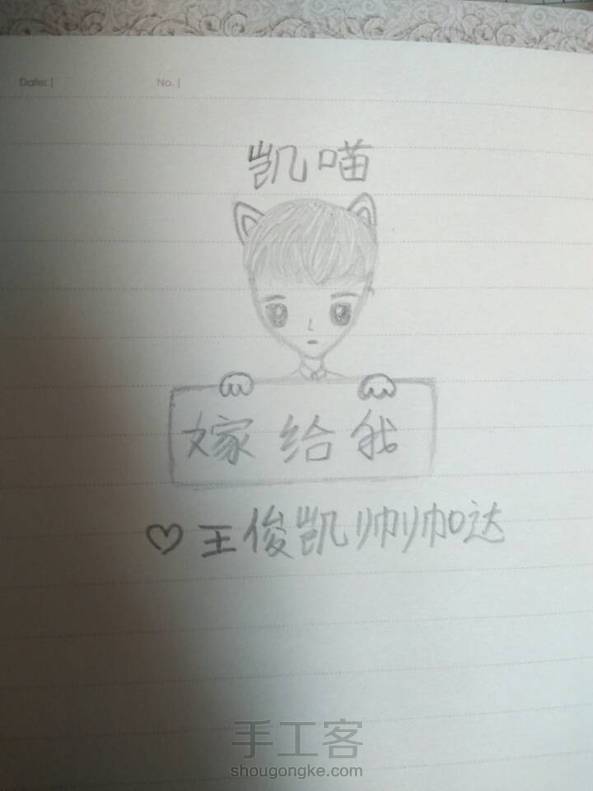 Date: |
No. |
凯喵
嫁给我
♡王俊凯帅帅哒
手工客
shougongke.com